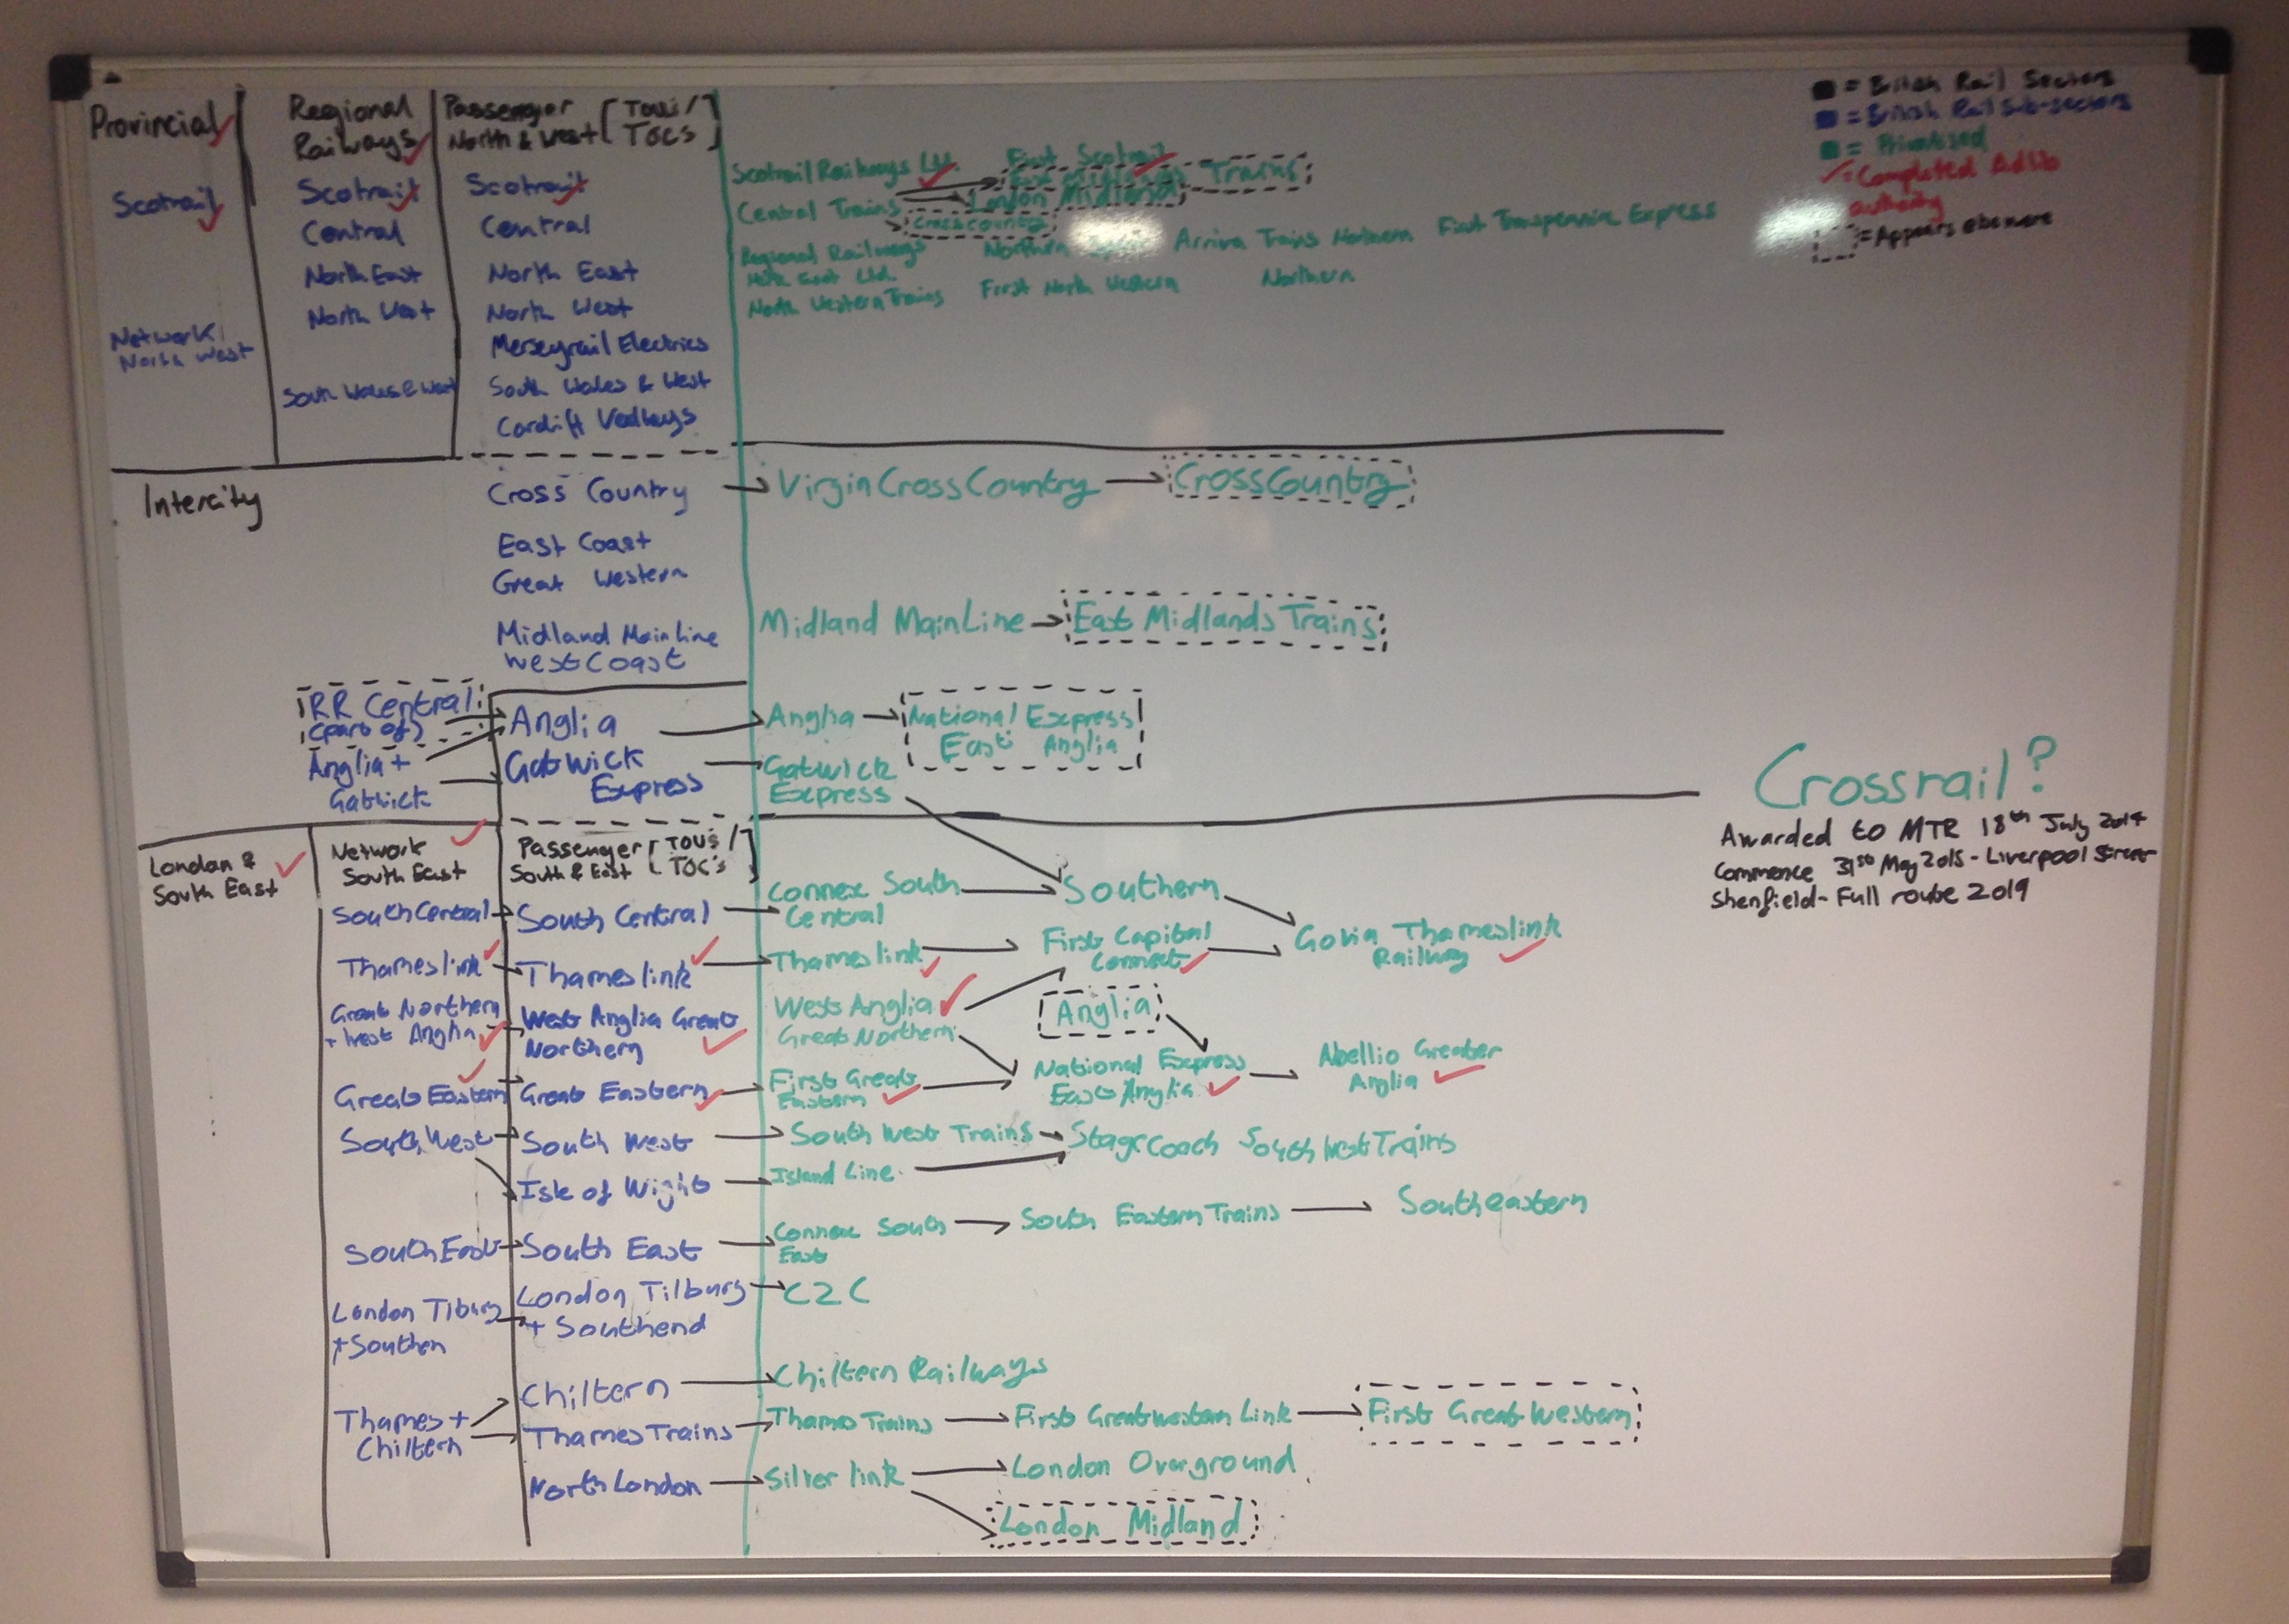 Provincial
Scotrail
Network
North West
Regional
Railways
Scotrail
Central
North East
North West
South Wales & West
Passenger
North & West [TOUs/
TOCs]
Scotrail
Central
North East
North West
Merseyrail Electrics
South Wales & West
Cardiff Valleys
Scotrail Railways Ltd.
First Scotrail
Trains
Central Trains
London Midland
Crosscountry
Regional Railways
North East Ltd.
Northern
Arriva Trains Northern
First Transpennine Express
North Western Trains
First North Western
Northern
= British Rail Sectors
= British Rail Sub-sectors
= Privatised
= Completed Adlib
authority
= Appears elsewere
Intercity
Cross Country
Virgin CrossCountry
CrossCountry
East Coast
Great Western
Midland MainLine
West Coast
Midland MainLine
East Midlands Trains
RR Central
(part of)
Anglia +
Gatwick
Anglia
Gatwick
Express
Anglia
National Express
East Anglia
Gatwick
Express
Crossrail?
Awarded to MTR 18th July 2014
Commence 31st May 2015 - Liverpool Street
Shenfield - Full route 2019
London &
South East
Network
South East
Passenger [TOUs/
South & East TOC's]
South Central
South Central
Connex South
Central
Southern
Thameslink
Thameslink
Thameslink
First Capital
Connect
Govia Thameslink
Railway
Great Northern
+ West Anglia
West Anglia Great
Northern
West Anglia
Great Northern
Anglia
Great Eastern
Great Eastern
First Great
Eastern
National Express
East Anglia
Abellio Greater
Anglia
South West
South West
South West Trains
Stagecoach South West Trains
Isle of Wight
Island Line
South East
South East
Connex South
East
South Eastern Trains
Southeastern
London Tilbury
+ Southen
London Tilbury
+ Southend
C2C
Thames +
Chiltern
Chiltern
Chiltern Railways
Thames Trains
Thames Trains
First Great Western Link
First Great Western
North London
Silverlink
London Overground
London Midland